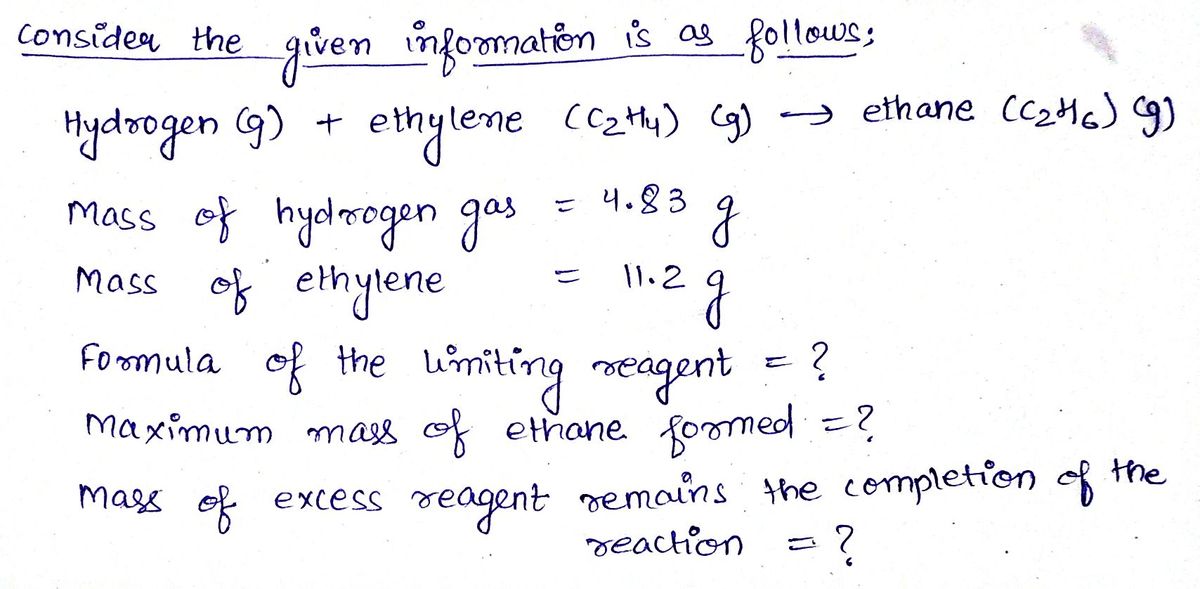 Consider the given information is as follows;
Hydrogen (g) + ethylene (C2H4) (g) → ethane (C2H6) (g)
Mass of hydrogen gas = 4.83 g
Mass of ethylene = 11.2 g
Formula of the limiting reagent = ?
Maximum mass of ethane formed = ?
Mass of excess reagent remains the completion of the
reaction = ?